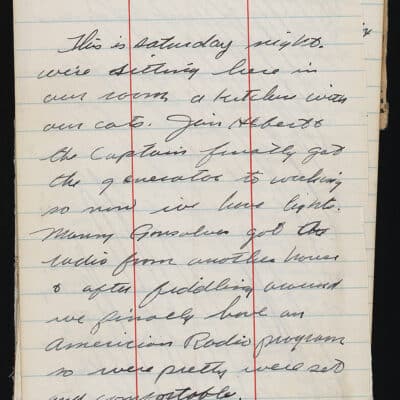 This is saturday night.
we're sitting here in
our room a kitchen with
our cots. Jim Hebert &
the Captain finally got
the generator to working
so now we have lights.
Manny Gonsalves got the
radio from another house
& after fiddling around
we finally have an
American Radio program
so were pretty were set
and comfortable.